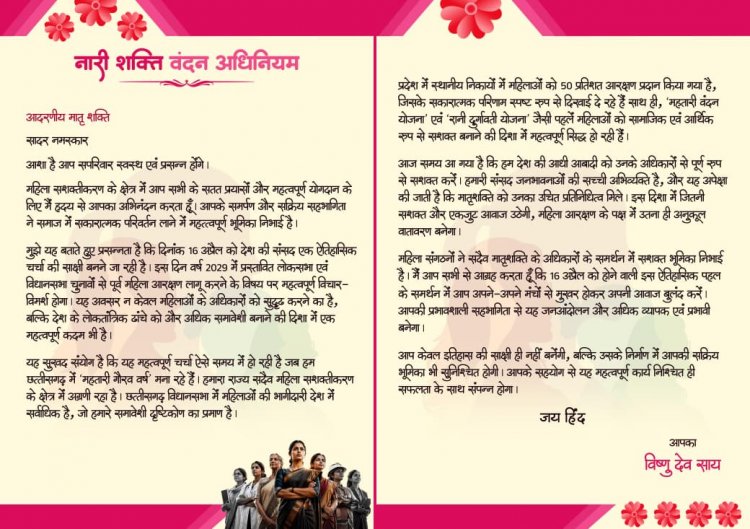 नारी शक्ति वंदन अधिनियम
आदरणीय मातृ शक्ति
सादर नमस्कार
आशा है आप सपरिवार स्वस्थ एवं प्रसन्न होंगे।
महिला सशक्तीकरण के क्षेत्र में आप सभी के सतत प्रयासों और महत्वपूर्ण योगदान के
लिए मैं हृदय से आपका अभिनंदन करता हूँ। आपके समर्पण और सक्रिय सहभागिता
ने समाज में सकारात्मक परिवर्तन लाने में महत्त्वपूर्ण भूमिका निभाई है।
मुझे यह बताते हुए प्रसन्नता है कि दिनांक 16 अप्रैल को देश की संसद एक ऐतिहासिक
चर्चा की साक्षी बनने जा रही है। इस दिन वर्ष 2029 में प्रस्तावित लोकसभा एवं
विधानसभा चुनावों से पूर्व महिला आरक्षण लागू करने के विषय पर महत्वपूर्ण विचार-
विमर्श होगा। यह अवसर न केवल महिलाओं के अधिकारों को सुदृढ़ करने का है,
बल्कि देश के लोकतांत्रिक ढांचे को और अधिक समावेशी बनाने की दिशा में एक
महत्वपूर्ण कदम भी है।
यह सुखद संयोग है कि यह महत्वपूर्ण चर्चा ऐसे समय में हो रही है जब हम
छत्तीसगढ़ में 'महतारी गौरव वर्ष' मना रहे हैं। हमारा राज्य सदैव महिला सशक्तीकरण
के क्षेत्र में अग्रणी रहा है। छत्तीसगढ़ विधानसभा में महिलाओं की भागीदारी देश में
सर्वाधिक है, जो हमारे समावेशी दृष्टिकोण का प्रमाण है।
प्रदेश में स्थानीय निकायों में महिलाओं को 50 प्रतिशत आरक्षण प्रदान किया गया है,
जिसके सकारात्मक परिणाम स्पष्ट रुप से दिखाई दे रहे हैं साथ ही, 'महतारी वंदन
योजना' एवं 'रानी दुर्गावती योजना' जैसी पहलें महिलाओं को सामाजिक एवं आर्थिक
रुप से सशक्त बनाने की दिशा में महत्वपूर्ण सिद्ध हो रही हैं।
आज समय आ गया है कि हम देश की आधी आबादी को उनके अधिकारों से पूर्ण रुप
से सशक्त करें। हमारी संसद जनभावनाओं की सच्ची अभिव्यक्ति है, और यह अपेक्षा
की जाती है कि मातृशक्ति को उनका उचित प्रतिनिधित्व मिले। इस दिशा में जितनी
सशक्त और एकजुट आवाज उठेगी, महिला आरक्षण के पक्ष में उतना ही अनुकूल
वातावरण बनेगा।
महिला संगठनों ने सदैव मातृशक्ति के अधिकारों के समर्थन में सशक्त भूमिका निभाई
है। मैं आप सभी से आग्रह करता हूँ कि 16 अप्रैल को होने वाली इस ऐतिहासिक पहल
के समर्थन में आप अपने-अपने मंचों से मुखर होकर अपनी आवाज बुलंद करें।
आपकी प्रभावशाली सहभागिता से यह जनआंदोलन और अधिक व्यापक एवं प्रभावी
बनेगा।
आप केवल इतिहास की साक्षी ही नहीं बनेंगी, बल्कि उसके निर्माण में आपकी सक्रिय
भूमिका भी सुनिश्चित होगी। आपके सहयोग से यह महत्वपूर्ण कार्य निश्चित ही
सफलता के साथ संपन्न होगा।
जय हिंद
आपका
विष्णु देव साय